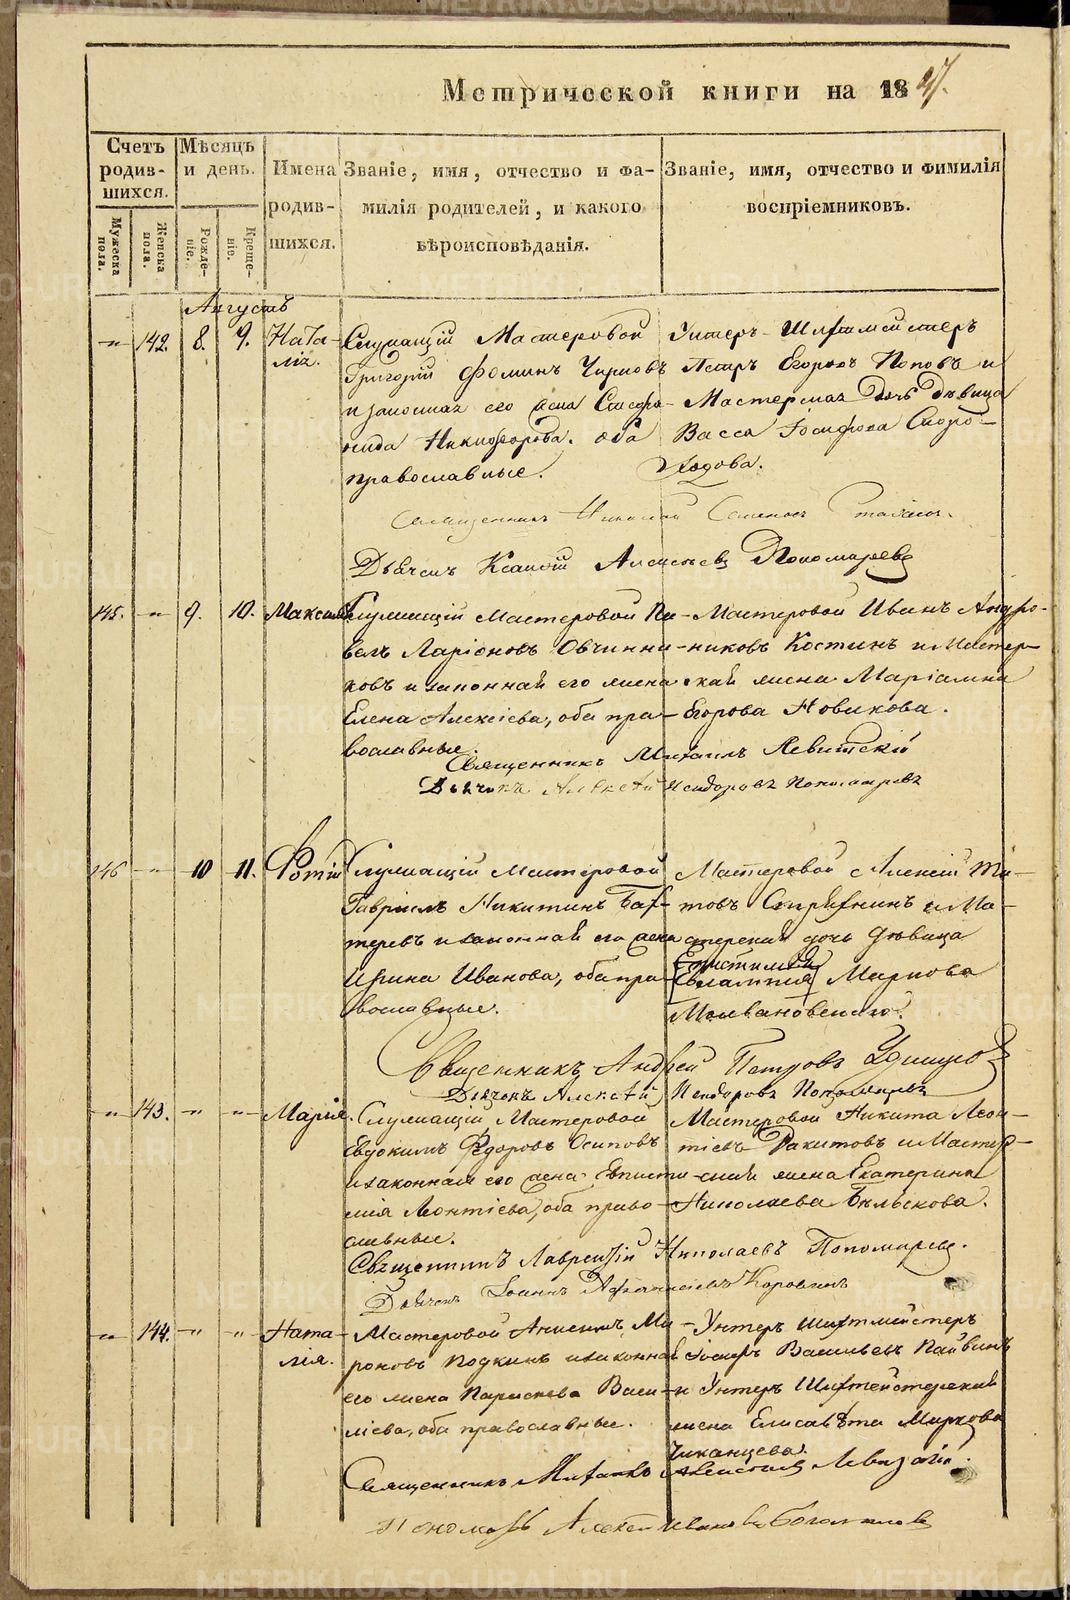 Метрической книги на 1847.
Счетъ родив- шихся.
Мѣсяцъ и день.
Имена родив- шихся.
Званіе, имя, отчество и фа-
милія родителей, и какого
вѣроисповѣданія.
Званіе, имя, отчество и фимилія
воспріемниковъ.
Мужеска пола.
Женска пола.
Рожде- ніе.
Креще- ніе.
Августъ
-"- 142. 8. 9. Ната- лія.
Служащій Мастеровой
Григорій Фоминъ
и законная его жена Степа-
нида Никифорова. оба
православные.
Унтеръ-Шихтмейстеръ
Петръ Егоровъ Поповъ и
Мастерская дочь Дѣвица
Васса Іосифова Скоро-
ходова.
Священникъ Николай
Дьячекъ Алексѣевъ Пономаревъ
145. -"- 9. 10. Максимъ
Служащій Мастеровой Па-
велъ Ларіоновъ Овчинни-
ковъ и законная его жена
Елена Алексіева, оба пра-
вославные.
Мастеровой Иванъ Андро-
никовъ Костинъ и Мастер-
ская жена Маріамна
Егорова Новикова.
Священникъ Михаилъ Левитскій
Дьячекъ Алексѣй Исидоровъ Пономаревъ
146 -"- 10 11. Фотій
Служащій Мастеровой
Гавріилъ Никитинъ Бах-
теревъ и законная его жена
Ирина Иванова, оба пра-
вославные.
Мастеровой Алексій Ти-
товъ и Ма-
стерская дочь дѣвица
Епистимія
Евлампія Маркова
Священникъ Андрей Петровъ
Дьячекъ Алексѣй Исидоровъ Пономаревъ
-"- 143. -"- -"- Марія.
Служащій Мастеровой
Евдокимъ Федоровъ Осиповъ
и законная его жена Еписти-
мія Леонтіева, оба право-
славные.
Мастеровой Никита Леон-
тіевъ Ракитовъ и Мастер-
ская жена Екатерина
Николаева Бѣлькова.
Священникъ Лаврентій Николаевъ Пономаревъ.
Дьячекъ Іоаннъ Афанасіевъ Коровинъ
-"- 144. -"- -"- Ната- лія.
Мастеровой Ми-
роновъ Подкинъ и законная
его жена Параскева Васи-
ліева, оба православные.
Унтеръ Шихтмейстеръ
Іосифъ Васильевъ Пайвинъ
и Унтеръ Шихтмейстерская
жена Елисавѣта Маркова
Чиканцева.
Священникъ Михаилъ Алексѣевъ Левитскій.
Пономарь Алексѣй Ивановъ Богомоловъ
METRIKI.GASO-URAL.RU